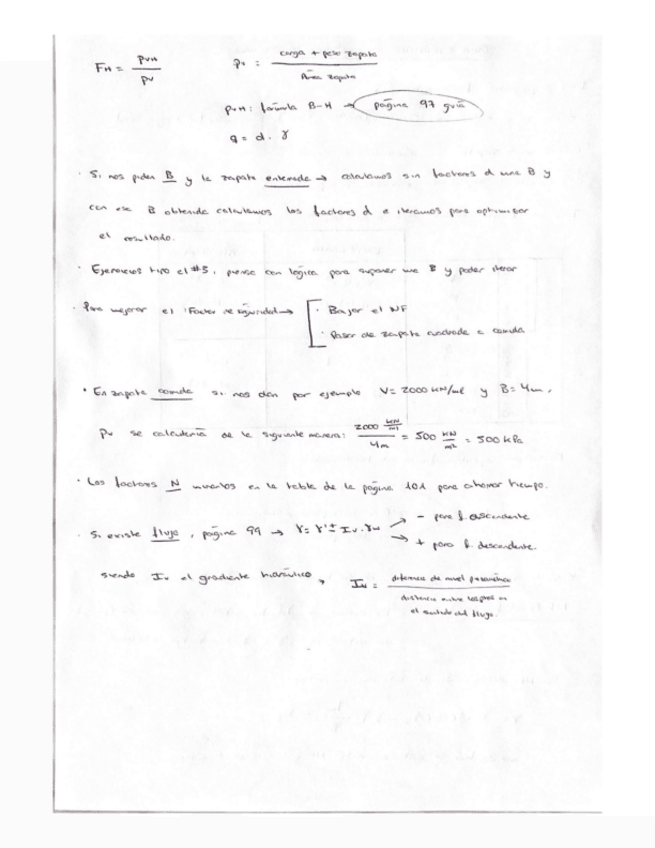 F_H = p_vH / p_v    p_v : carga + peso zapata / Área zapata
p_vH : fórmula B-H → página 97 guía
q = d · γ
· Si nos piden B y la zapata enterrada → calculamos sin factores d una B y
con ese B obtenida calculamos los factores d e iteramos para optimizar
el resultado.
· Ejercicios tipo el #5, piensa con lógica para suponer una B y poder iterar
· Para mejorar el Factor de seguridad →
· Bajar el NF
· Pasar de zapata cuadrada a corrida
· En zapata corrida si nos dan por ejemplo V = 2000 kN/ml y B = 4m,
p_v se calcularía de la siguiente manera: 2000 kN/ml / 4m = 500 kN/m² = 500 kPa
· Los factores N mirarlos en la tabla de la página 101 para ahorrar tiempo.
· Si existe flujo, página 99 → γ = γ' ± I_v · γ_w
- para f. ascendente
+ para f. descendente.
siendo I_v el gradiente hidráulico, I_v = diferencia de nivel piezométrico /
distancia entre los ptos en
el sentido del flujo.